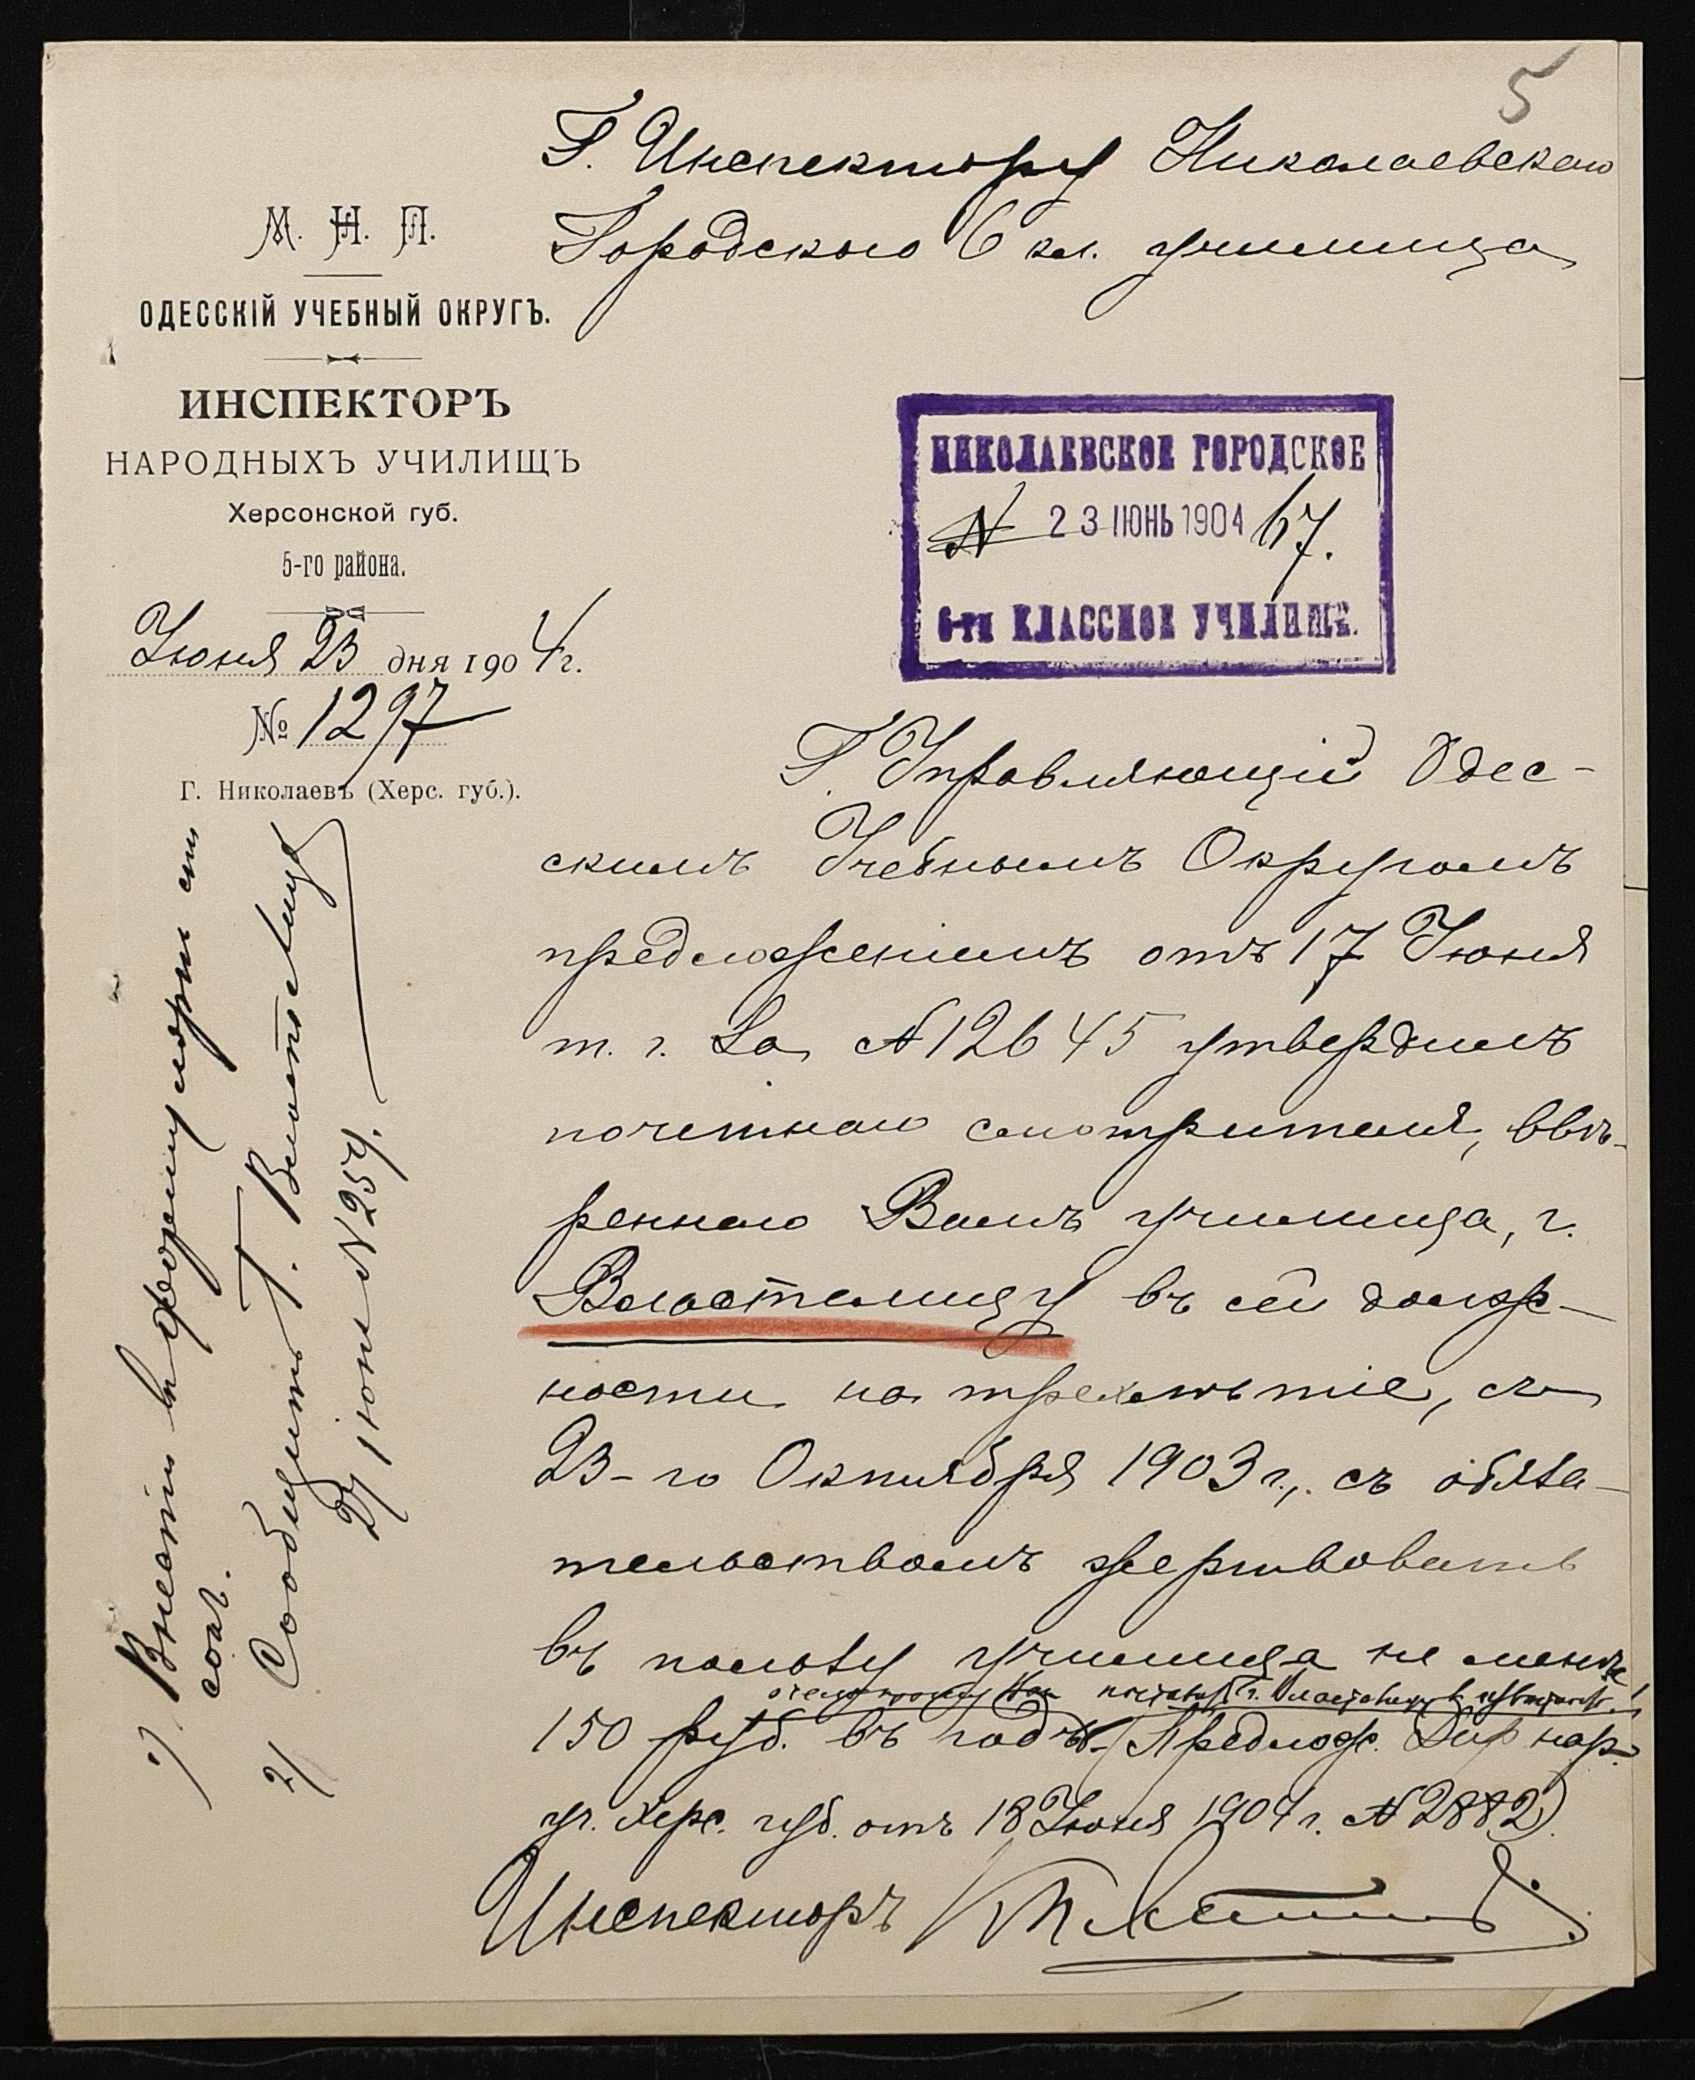 5
Г. Инспектору Николаевскаго
Городского 6 кл. училища
М. Н. П.
ОДЕССКІЙ УЧЕБНЫЙ ОКРУГЪ.
ИНСПЕКТОРЪ
НАРОДНЫХЪ УЧИЛИЩЪ
Херсонской губ.
5-го района.
Іюня 23 дня 1904 г.
№ 1297
Г. Николаевъ (Херс. губ.).
НИКОЛАЕВСКОЕ ГОРОДСКОЕ
№ 23 ІЮНЬ 1904 67.
6-ти КЛАССНОЕ УЧИЛИЩЕ.
Г. Управляющій Одес-
скимъ Учебнымъ Округомъ
предложеніемъ отъ 17 Іюня
т. г. за № 12645 утвердилъ
почетнаго смотрителя, ввѣ-
реннаго Вамъ училища, г.
Властелицу въ сей долж-
ности на трехлѣтіе, съ
23-го Октября 1903 г., съ обяза-
тельствомъ жертвовать
въ пользу училища не менѣе
150 руб. въ годъ (Предлож. Дир. нар.
уч. Херс. губ. отъ 18 Іюня 1904 г. № 2882).
Инспекторъ
1) Внести въ формулярн. спи
сокъ.
2) Сообщить Г. Властелицѣ
27 іюня № 254.